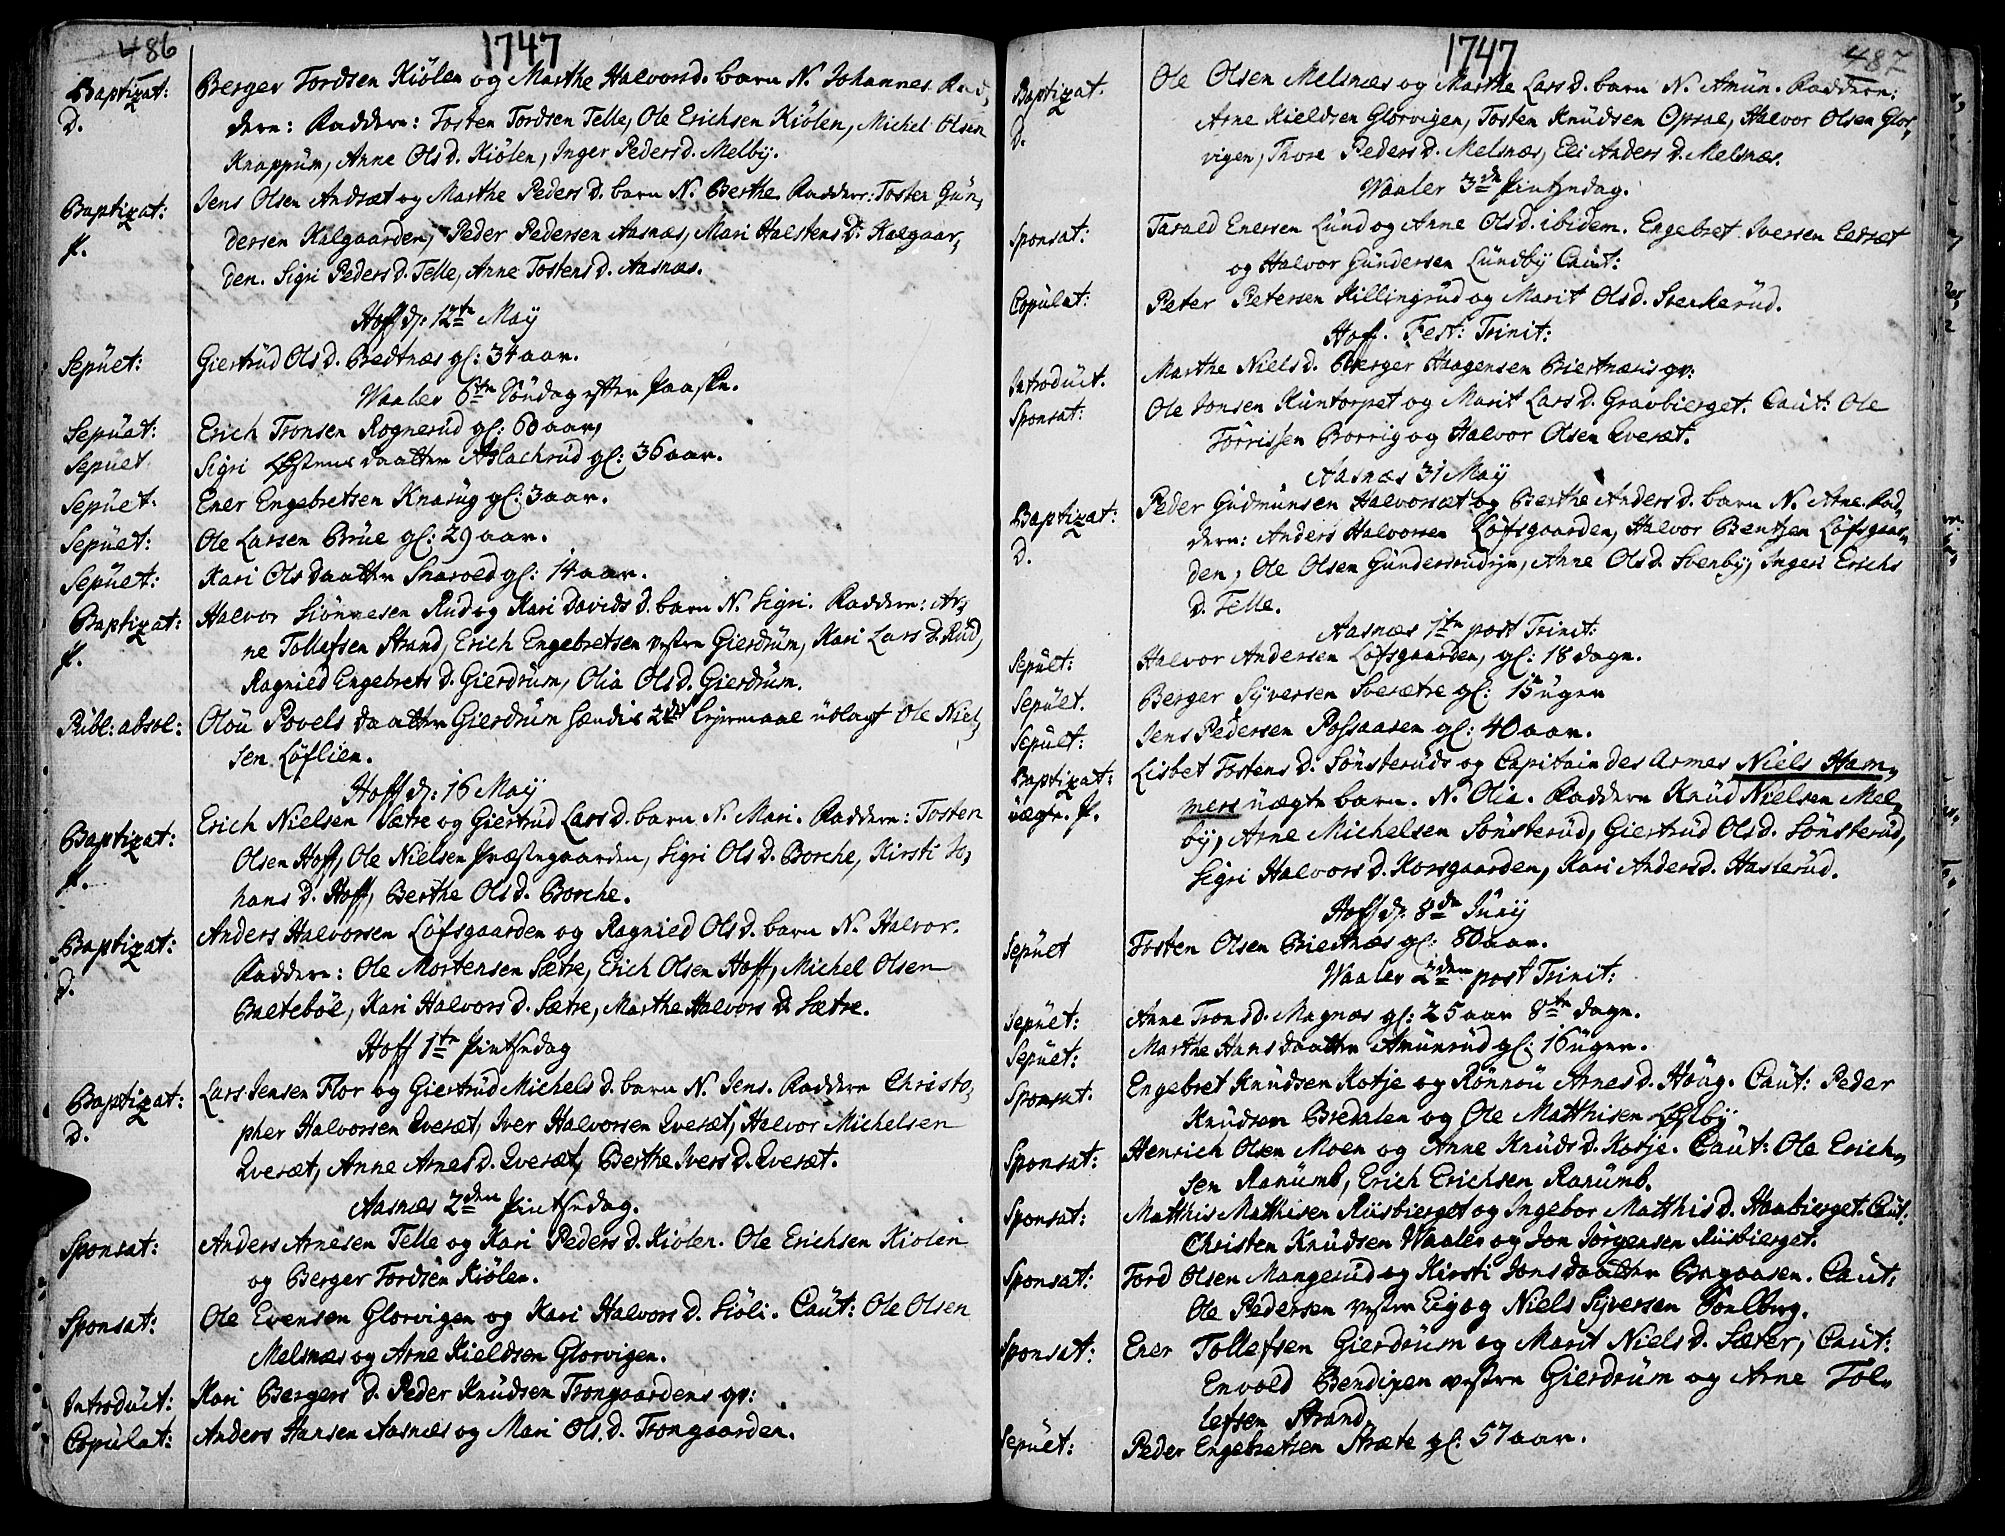 486
1747
Baptizat: Berger Tordsen Kiölen og Marthe Halvorsd. barn N. Johannes. Fad,
D. dere: Faddere: Tosten Tordsen Telle, Ole Erichsen Kiölen, Michel Olsen
Knappum, Anne Ols D. Kiölen, Inger Peders D. Melby.
Baptizat: Jens Olsen Andsæt og Marthe Peders D. barn N. Berthe Faddere: Tosten Gun,
p. dersen Kalgaarden, Peder Pedersen Aasnæs, Mari Halstens D. Kalgaar,
den. Sigri Peders D. Telle, Anne Tostens D. Aasnæs.
Hoff d: 12te May
Sepult: Giertrud Ols D. Brednæs gl: 34 aar.
Waaler 6te Söndag efter Paaske.
Sepult: Erich Tronsen Rognerud gl: 60 aar,
Sepult Sigri Østens daatter Aslachrud gl: 36 aar.
Sepult: Ener Engebretsen Knarug gl: 3 aar.
Sepult: Ole Larsen Brue gl: 29 aar.
Sepult: Kari Ols daatter Snarved gl: 14 aar.
Baptizat: Halvor Siönnesen Rud og Kari Davids d. barn N. Sigri. Faddere: Ar,
p. ne Tollefsen Strand, Erich Engebretsen vestre Gierdrum, Kari Lars D. Rud,
Ragnied Engebrets D. Gierdrum, Olia Ols D. Gierdrum.
Publ: absol: Olou Povels daatter Gierdrum hendis 2det leiermaal udlagt Ole Niel,
sen Løflien.
Hoff d: 16 May
Baptizat: Erich Nielsen Sætre og Giertrud Lars D. barn N. Mari. Faddere: Tosten
p. Olsen Hoff, Ole Nielsen Præstegaarden, Sigri Ols D. Borche, Kirsti Jo,
hans D. Hoff, Berthe Ols D. Borche.
Baptizat: Anders Halvorsen Löfsgaarden og Ragnied Ols D. barn N. Halvor.
D. Faddere: Ole Mortensen Sætre, Erich Olsen Hoff, Michel Olsen
Bretebøl, Kari Halvors D. Sætre, Marthe Halvors D. Sætre.
Hoff 1te Pintsedag
Baptizat: Lars Jensen Flor og Giertrud Michels D. barn N. Jens. Faddere Christo,
D. pher Halvorsen Qveræt, Iver Halvorsen Qveræt, Halvor Michelsen
Qveræt, Anne Arnes D. Qveræt, Berthe Ivers D. Qveræt.
Aasnæs 2den Pintsedag.
Sponsat: Anders Arnesen Telle og Kari Peders D. Kiölen. Ole Erichsen Kiolen
og Berger Tordsen Kiölen.
Sponsat: Ole Evensen Glorvigen og Kari Halvors D. Siöli. Caut: Ole Olsen
Melsnæs og Arne Kieldsen Glorvigen.
Introduct: Kari Bergers D. Peder Knudsen Trongaardens qv:
Copulat: Anders Hansen Aasnæs og Mari Ols. D. Trongaarden.
487
1747
Baptizat. Ole Olsen Melsnæs og Marthe Lars D. barn N. Amun. Faddere:
D. Arne Kieldsen Glorvigen, Tosten Knudsen Opsal, Halvor Olsen Glor,
vigen, Thore Peders D. Melsnæs, Eli Anders D. Melsnæs.
Waaler 3de Pintsedag.
Sponsat: Tarald Enersen Lund og Anne Ols D. ibidem. Engebret Iversen Eetræt
og Halvor Gundersen Lundby Caut:
Copulat: Peter Petersen Killingrud og Marit Ols D. Sterkerud.
Hoff. Fest: Trinit:
Introduct. Marthe Niels D. Berger Haagensen Briertnæsis qv:
Sponsat: Ole Jonsen Kuntorpet og Marit Lars D. Gravbierget. Caut: Ole
Törrissen Borrig og Halvor Olsen Qveræt.
Aasnæs 31 May
Baptizat: Peder Gudmunsen Halvorsæt og Berthe Anders D. barn N. Arne. Fad,
D. dere: Anders Halvorsen Löfsgaarden, Halvor Bentsen Löfsgaar,
den, Ole Olsen Gundersrudsin, Anne Ols D. Svenby, Inger Erichs
D. Telle.
Aasnæs 1te post Trinit:
Sepult: Halvor Andersen Löfsgaarden, gl: 18 dage.
Sepult. Berger Syversen Sveætre gl: 15 uger
Sepult: Jens Pedersen Possaasen gl: 40 aar.
Baptizat: Lisbet Tostens D. Sönsteruds og Capitain des Armes Niels Ham,
uægte. p. mers uægte barn. N. Olia. Faddere Knud Nielsen Mel,
by, Arne Michelsen Sönsterud, Giertrud Ols D. Sönsterud,
Sigri Halvors D. Korsgaarden, Kari Anders D. Hasterud.
Hoff d. 8de Juny
Sepult Tosten Olsen Briertnæs gl: 80 aar.
Waaler 2den post Trinit:
Sepult: Anne Trons D. Magnæs gl: 25 aar 8te dage.
Sepult: Marthe Hans daatter Amunrud gl: 16 uger.
Sponsat. Engebret Knudsen Kotje og Rönnou Arnes D. Houg. Caut: Peder
Knudsen Bredalen og Ole Matthisen Østby
Sponsat: Henrich Olsen Moen og Anne Knuds D. Kotje. Caut: Ole Erich,
sen Ranumb, Erich Erichsen Ranumb.
Sponsat: Matthis Matthisen Riisbierget og Ingebor Matthis D. Haabierget. Caut.
Christen Knudsen Waaler og Jon Jörgensen Riisbierget.
Sponsat: Tord Olsen Mangerud og Kirsti Jons daatter Bagaasen. Caut.
Ole Pedersen vestre Eig og Niels Syversen Sonlberg.
Sponsat: Ener Tollefsen Gierdrum og Marit Niels D. Sæter, Caut:
Envold Bendixen vestre Gierdrum og Arne Tol,
lefsen Strand.
Sepult: Peder Engebretsen Stræte gl: 57 aar.